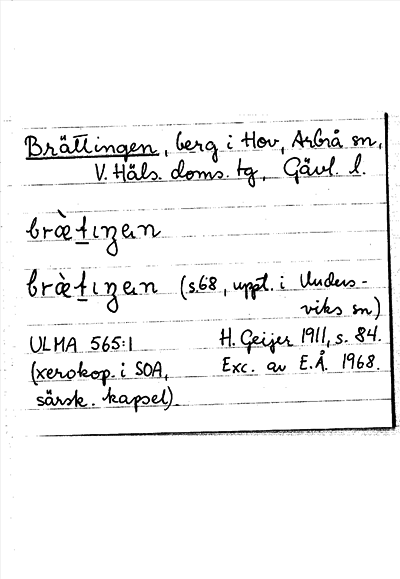 Brättingen, berg i Hov, Arbrå sn,
V. Häls. doms. tg, Gävl. l.
bræ̀t̲ıŋen
bræ̀t̲ıŋen (s.68, uppt. i Unders-
viks sn)
ULMA 565:1 H. Geijer 1911, s. 84.
(xerokop. i SOA, Exc. av E.Å. 1968.
särsk. kapsel)